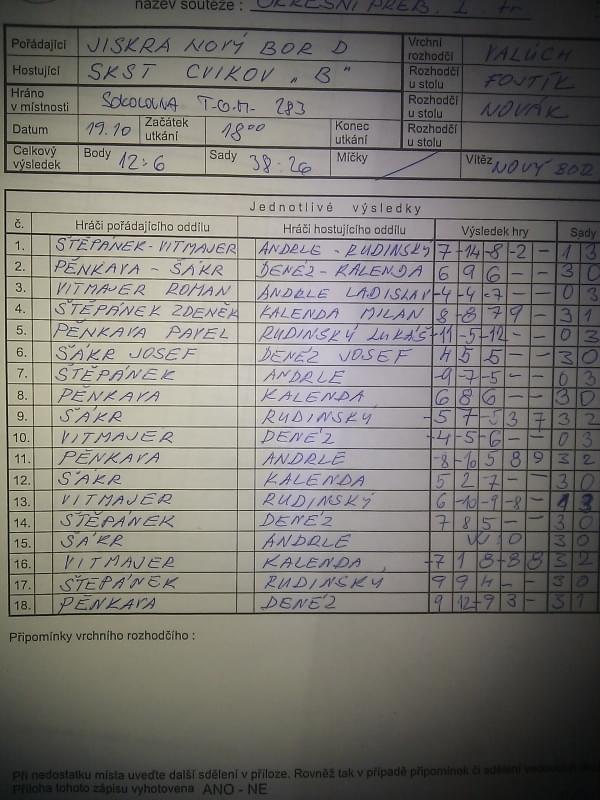 název soutěže : OKRESNÍ PŘEB. 2. tř.
Pořádající JISKRA NOVÝ BOR D Vrchní rozhodčí VALÚCH
Hostující SKST CVIKOV „B" Rozhodčí u stolu FOJTÍK
Hráno v místnosti SOKOLOVNA T.G.M. 283 Rozhodčí u stolu NOVÁK
Datum 19.10 Začátek utkání 18⁰⁰ Konec utkání Rozhodčí u stolu
Celkový výsledek Body 12:6 Sady 38:26 Míčky Vítěz NOVÝ BOR
Jednotlivé výsledky
č. Hráči pořádajícího oddílu Hráči hostujícího oddílu Výsledek hry Sady
1. ŠTĚPÁNEK-VITMAJER ANDRLE - RUDINSKÝ 7 -14 -8 -2 - 1 3
2. PĚNKAVA - ŠÁKR DENĚZ - KALENDA 6 9 6 - - 3 0
3. VITMAJER ROMAN ANDRLE LADISLAV -4 -4 -7 - - 0 3
4. ŠTĚPÁNEK ZDENĚK KALENDA MILAN 8 -8 7 9 - 3 1
5. PĚNKAVA PAVEL RUDINSKÝ LUKÁŠ -11 -5 -12 - - 0 3
6. ŠÁKR JOSEF DENĚZ JOSEF 4 5 5 - - 3 0
7. ŠTĚPÁNEK ANDRLE -9 -7 -5 - - 0 3
8. PĚNKAVA KALENDA 6 8 6 - - 3 0
9. ŠÁKR RUDINSKÝ -5 7 -5 3 7 3 2
10. VITMAJER DENĚZ -4 -5 -6 - - 0 3
11. PĚNKAVA ANDRLE -8 -10 5 8 9 3 2
12. ŠÁKR KALENDA 5 2 7 - - 3 0
13. VITMAJER RUDINSKÝ 6 -10 -9 -8 - 1 3
14. ŠTĚPÁNEK DENĚZ 7 8 5 - - 3 0
15. ŠÁKR ANDRLE W:O 3 0
16. VITMAJER KALENDA -7 1 8 -8 8 3 2
17. ŠTĚPÁNEK RUDINSKÝ 9 9 4 - - 3 0
18. PĚNKAVA DENĚZ 9 12 -9 3 - 3 1
Připomínky vrchního rozhodčího :
Při nedostatku místa uveďte další sdělení v příloze. Rovněž tak v případě připomínek či sdělení
Příloha tohoto zápisu vyhotovena ANO - NE